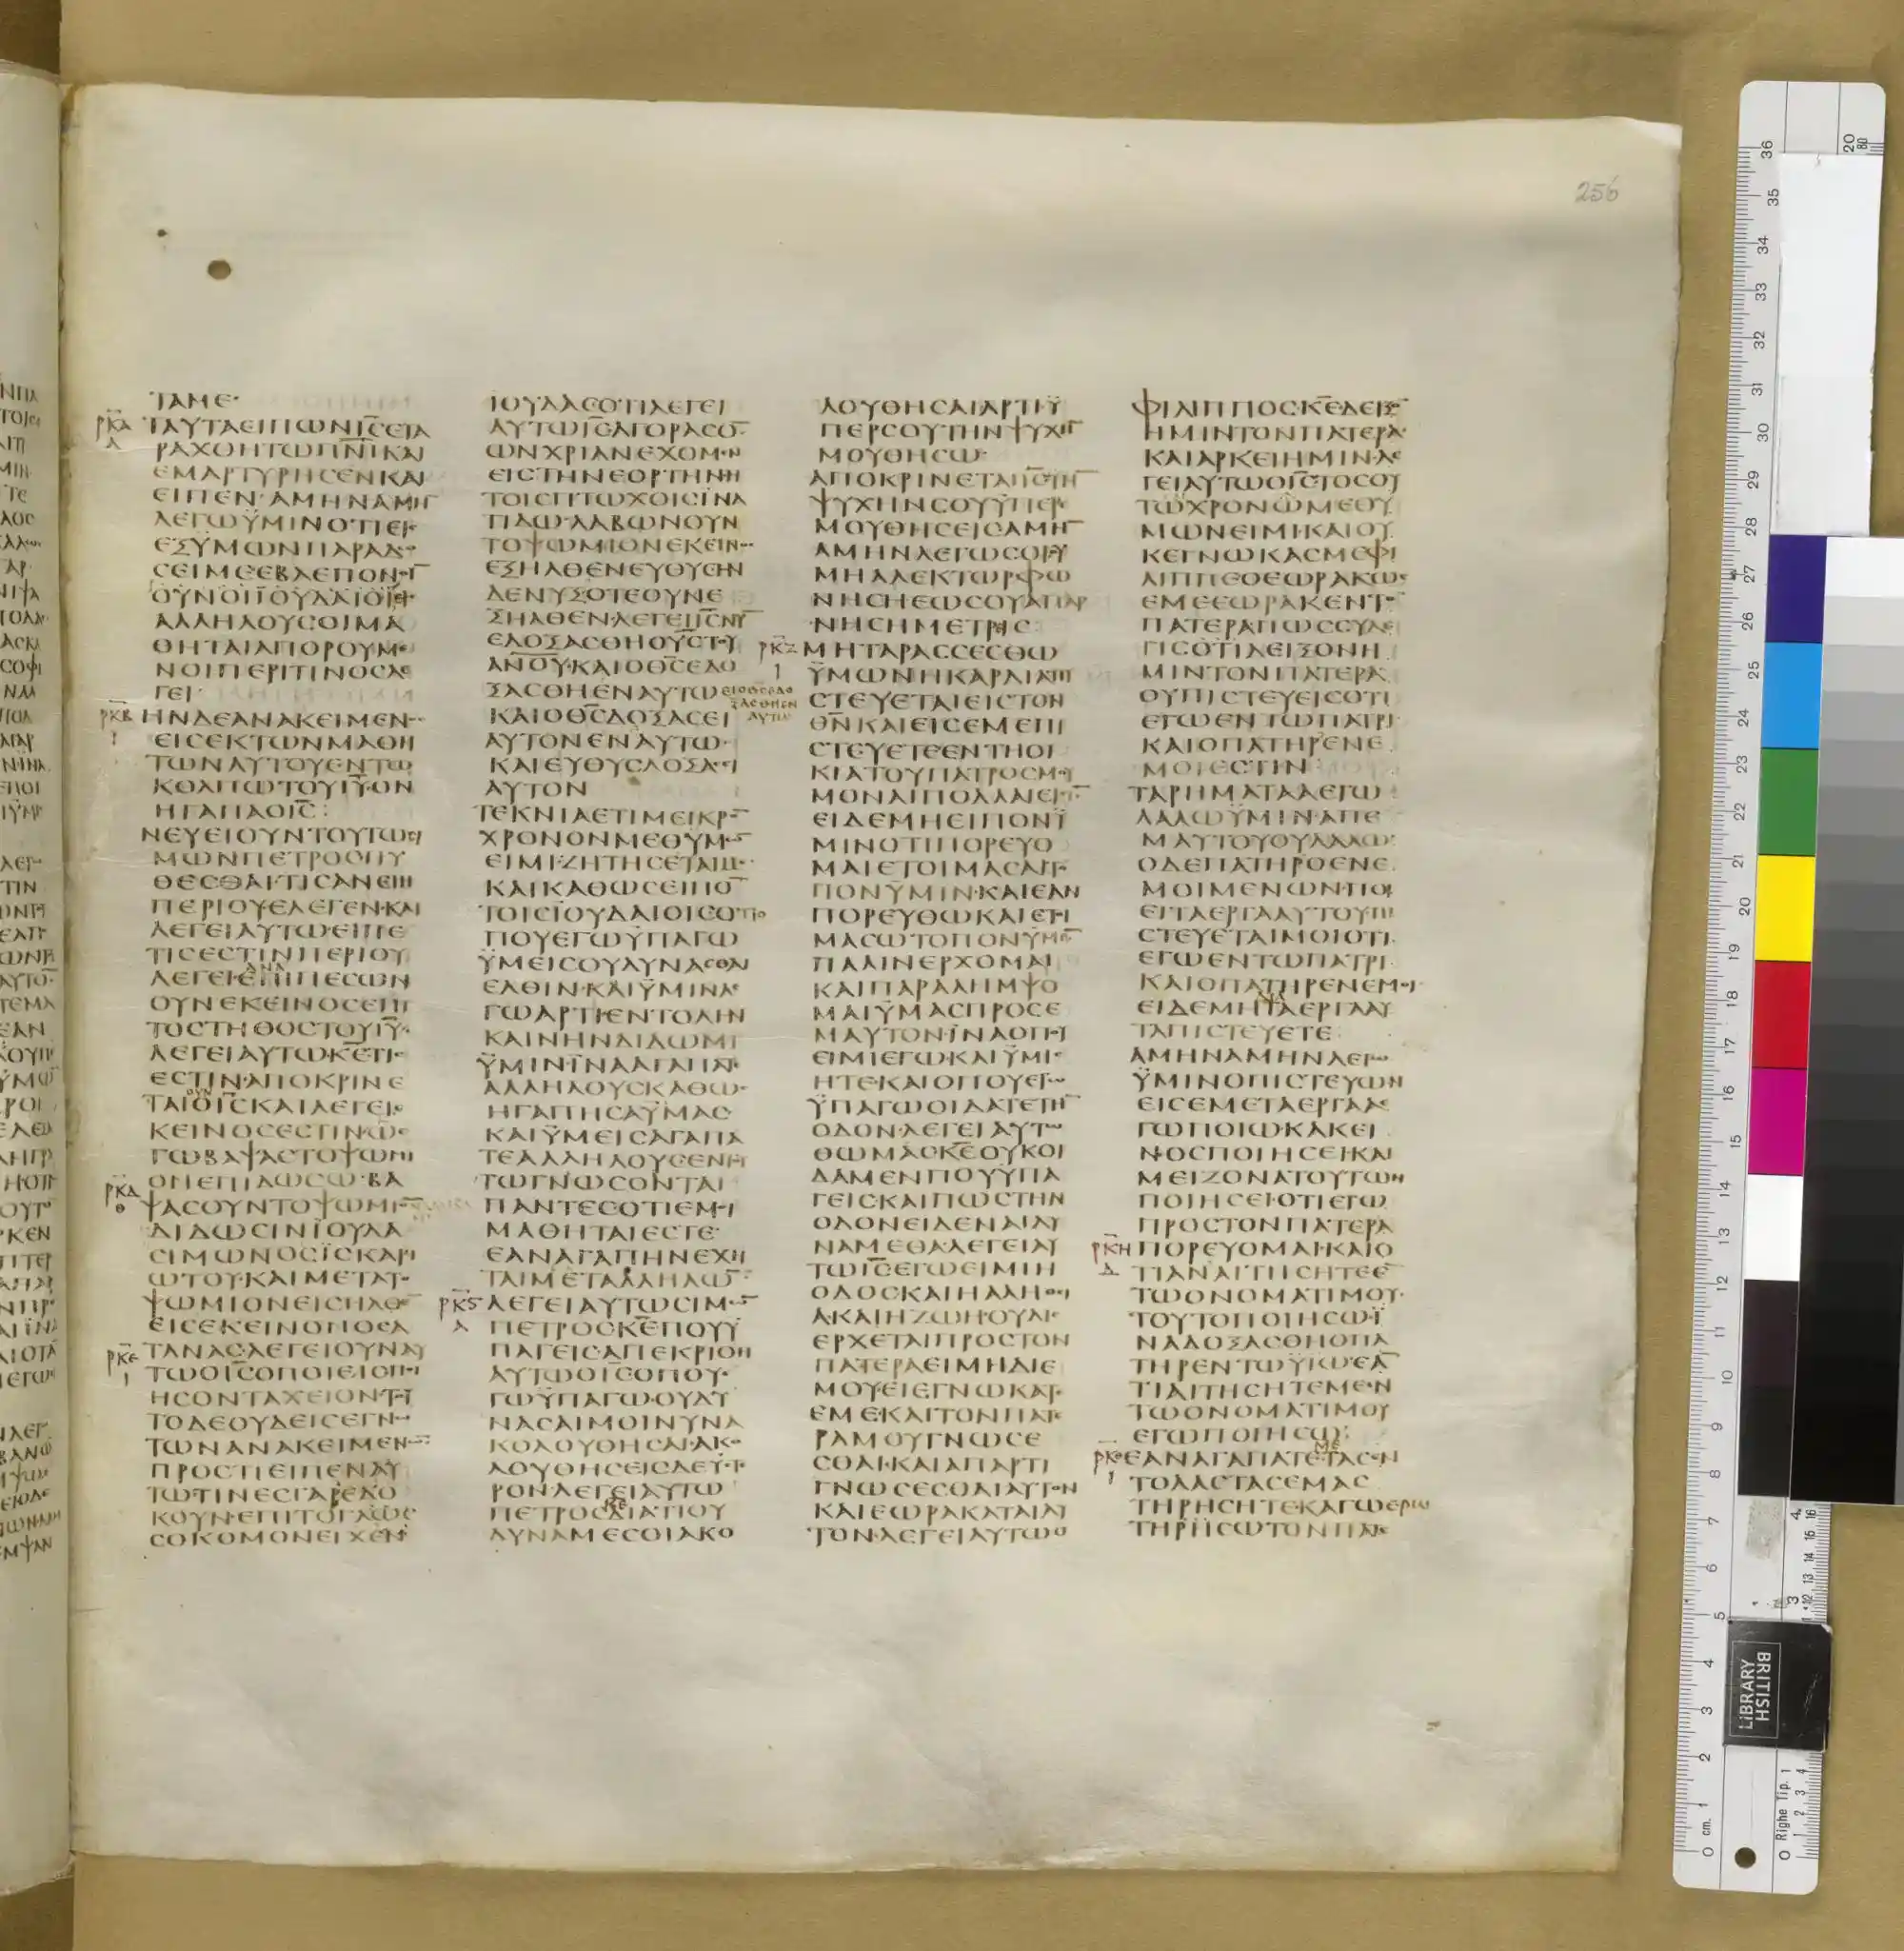 256
ΤΑΜΕ·
ΤΑΥΤΑΕΙΠΩΝΙ̅Σ̅ΕΤΑ
ΡΑΧΘΗΤΩΠ̅Ν̅Ι̅ΚΑΙ
ΕΜΑΡΤΥΡΗϹΕΝΚΑΙ
ΕΙΠΕΝ·ΑΜΗΝΑΜΗ̅
ΛΕΓΩΫΜΙΝΟΤΙΕΙϹ
ΕΞΫΜΩΝΠΑΡΑΔΩ
ϹΕΙΜΕΕΒΛΕΠΟΝ
ΟΥΝΟΙΪΟΥΔΑΙΟΙΕΙϹ
ΑΛΛΗΛΟΥϹΟΙΜΑ
ΘΗΤΑΙΑΠΟΡΟΥΜΕ
ΝΟΙΠΕΡΙΤΙΝΟϹΛΕ
ΓΕΙ·
ΗΝΔΕΑΝΑΚΕΙΜΕΝΟϹ
ΕΙϹΕΚΤΩΝΜΑΘΗ
ΤΩΝΑΥΤΟΥΕΝΤΩ
ΚΟΛΠΩΤΟΥΙ̅Υ̅·ΟΝ
ΗΓΑΠΑΟΙ̅Ϲ̅:
ΝΕΥΕΙΟΥΝΤΟΥΤΩϹΙ
ΜΩΝΠΕΤΡΟϹΠΥ
ΘΕϹΘΑΙ·ΤΙϹΑΝΕΙΗ
ΠΕΡΙΟΥΕΛΕΓΕΝ·ΚΑΙ
ΛΕΓΕΙΑΥΤΩ·ΕΙΠΕ
ΤΙϹΕϹΤΙΝΠΕΡΙΟΥ
ΛΕΓΕΙ·ΕΠΙΠΕϹΩΝ
ΟΥΝΕΚΕΙΝΟϹΕΠΙ
ΤΟϹΤΗΘΟϹΤΟΥΙ̅Υ̅·
ΛΕΓΕΙΑΥΤΩΚ̅Ε̅ΤΙϹ
ΕϹΤΙΝ·ΑΠΟΚΡΙΝΕ
ΤΑΙΟΙ̅Ϲ̅ΚΑΙΛΕΓΕΙΕ
ΚΕΙΝΟϹΕϹΤΙΝΩΕ
ΓΩΒΑΨΑϹΤΟΨΩΜΙ
ΟΝΕΠΙΔΩϹΩ·ΒΑ
ΨΑϹΟΥΝΤΟΨΩΜΙΟ̅
ΔΙΔΩϹΙΝΪΟΥΔΑ
ϹΙΜΩΝΟϹΪϹΚΑΡΙ
ΩΤΟΥ·ΚΑΙΜΕΤΑΤΟ
ΨΩΜΙΟΝΕΙϹΗΛΘΕ̅
ΕΙϹΕΚΕΙΝΟΝΟϹΑ
ΤΑΝΑϹ·ΛΕΓΕΙΟΥΝΑΥ
ΤΩΟΙ̅Ϲ̅ΟΠΟΙΕΙϹΠΟΙ
ΗϹΟΝΤΑΧΕΙΟΝ·ΤΟΥ
ΤΟΔΕΟΥΔΕΙϹΕΓΝΩ
ΤΩΝΑΝΑΚΕΙΜΕΝΩ̅
ΠΡΟϹΤΙΕΙΠΕΝΑΥ
ΤΩ·ΤΙΝΕϹΓΑΡΕΔΟ
ΚΟΥΝ·ΕΠΙΤΟΓΛΩϹ
ϹΟΚΟΜΟΝΕΙΧΕΝ
ΙΟΥΔΑϹΟΤΙΛΕΓΕΙ
ΑΥΤΩΙ̅Ϲ̅ΑΓΟΡΑϹΟ̅
ΩΝΧΡΙΑΝΕΧΟΜΕΝ
ΕΙϹΤΗΝΕΟΡΤΗΝΗ
ΤΟΙϹΠΤΩΧΟΙϹΪΝΑ
ΤΙΔΩ·ΛΑΒΩΝΟΥΝ
ΤΟΨΩΜΙΟΝΕΚΕΙΝΟϹ
ΕΞΗΛΘΕΝΕΥΘΥϹΗΝ
ΔΕΝΥΞΟΤΕΟΥΝΕ
ΞΗΛΘΕΝ·ΛΕΓΕΙΙ̅Ϲ̅ΝΥ̅
ΕΔΟΞΑϹΘΗΟΥ̅Ϲ̅ΤΟΥ
ΑΝ̅ΟΥ̅·ΚΑΙΟΘ̅Ϲ̅ΕΔΟ
ΞΑϹΘΗΕΝΑΥΤΩ
ΚΑΙΟΘ̅Ϲ̅ΔΟΞΑϹΕΙ
ΑΥΤΟΝΕΝΑΥΤΩ·
ΚΑΙΕΥΘΥϹΔΟΞΑϹΙ
ΑΥΤΟΝ
ΤΕΚΝΙΑΕΤΙΜΕΙΚΡΟ̅
ΧΡΟΝΟΝΜΕΘΫΜΩ̅
ΕΙΜΙ·ΖΗΤΗϹΕΤΑΙΜΕ
ΚΑΙΚΑΘΩϹΕΙΠΟ̅
ΤΟΙϹΪΟΥΔΑΙΟΙϹΟΤΙΟ
ΠΟΥΕΓΩΫΠΑΓΩ
ΫΜΕΙϹΟΥΔΥΝΑϹΘΑΙ
ΕΛΘΙΝ·ΚΑΙΫΜΙΝΛΕ
ΓΩΑΡΤΙ·ΕΝΤΟΛΗΝ
ΚΑΙΝΗΝΔΙΔΩΜΙ
ΫΜΙΝ·ΪΝΑΑΓΑΠΑΤΕ
ΑΛΛΗΛΟΥϹΚΑΘΩϹ
ΗΓΑΠΗϹΑΫΜΑϹ
ΚΑΙΫΜΕΙϹΑΓΑΠΑ
ΤΕΑΛΛΗΛΟΥϹΕΝΤΟΥ
ΤΩΓΝΩϹΟΝΤΑΙ
ΠΑΝΤΕϹΟΤΙΕΜΟΙ
ΜΑΘΗΤΑΙΕϹΤΕ·
ΕΑΝΑΓΑΠΗΝΕΧΗ
ΤΑΙΜΕΤΑΛΛΗΛΩ̅
ΛΕΓΕΙΑΥΤΩϹΙΜΩ̅
ΠΕΤΡΟϹΚ̅Ε̅ΠΟΥΫ
ΠΑΓΕΙϹ·ΑΠΕΚΡΙΘΗ
ΑΥΤΩΟΙ̅Ϲ̅ΟΠΟΥΕ
ΓΩΫΠΑΓΩ·ΟΥΔΥ
ΝΑϹΑΙΜΟΙΝΥΝΑ
ΚΟΛΟΥΘΗϹΑΙ·ΑΚΟ
ΛΟΥΘΗϹΕΙϹΔΕΫϹΤΕ
ΡΟΝ·ΛΕΓΕΙΑΥΤΩ
ΠΕΤΡΟϹΔΙΑΤΙΟΥ
ΔΥΝΑΜΕϹΟΙΑΚΟ
ΕΙΟΘ̅Ϲ̅ΕΔΟ
ΞΑϹΘΗΕΝ
ΑΥΤΩ
ΛΟΥΘΗϹΑΙΑΡΤΙΫ
ΠΕΡϹΟΥΤΗΝΨΥΧΗ̅
ΜΟΥΘΗϹΩ·
ΑΠΟΚΡΙΝΕΤΑΙΙ̅Ϲ̅ΤΗ̅
ΨΥΧΗΝϹΟΥΫΠΕΡΕ
ΜΟΥΘΗϹΕΙϹΑΜΗ̅
ΑΜΗΝΛΕΓΩϹΟΙΟΥ
ΜΗΑΛΕΚΤΩΡΦΩ
ΝΗϹΗΕΩϹΟΥΑΠΑΡ
ΝΗϹΗΜΕΤΡΙϹ
ΜΗΤΑΡΑϹϹΕϹΘΩ
ΫΜΩΝΗΚΑΡΔΙΑΠΙ
ϹΤΕΥΕΤΑΙΕΙϹΤΟΝ
Θ̅Ν̅ΚΑΙΕΙϹΕΜΕΠΙ
ϹΤΕΥΕΤΕΕΝΤΗΟΙ
ΚΙΑΤΟΥΠΑΤΡΟϹΜΟΥ
ΜΟΝΑΙΠΟΛΛΑΙΕΙϹΙ̅
ΕΙΔΕΜΗΕΙΠΟΝΫ
ΜΙΝΟΤΙΠΟΡΕΥΟ
ΜΑΙΕΤΟΙΜΑϹΑΙΤΟ
ΠΟΝΫΜΙΝ·ΚΑΙΕΑΝ
ΠΟΡΕΥΘΩΚΑΙΕΤΟΙ
ΜΑϹΩΤΟΠΟΝΫΜΙ̅
ΠΑΛΙΝΕΡΧΟΜΑΙ
ΚΑΙΠΑΡΑΛΗΜΨΟ
ΜΑΙΫΜΑϹΠΡΟϹΕ
ΜΑΥΤΟΝ·ΪΝΑΟΠΟΥ
ΕΙΜΙΕΓΩΚΑΙΫΜΙϹ
ΗΤΕ·ΚΑΙΟΠΟΥΕΓΩ
ΫΠΑΓΩΟΙΔΑΤΕΤΗ̅
ΟΔΟΝ·ΛΕΓΕΙΑΥΤΩ
ΘΩΜΑϹΚ̅Ε̅ΟΥΚΟΙ
ΔΑΜΕΝΠΟΥΫΠΑ
ΓΕΙϹΚΑΙΠΩϹΤΗΝ
ΟΔΟΝΕΙΔΕΝΑΙΔΥ
ΝΑΜΕΘΑ·ΛΕΓΕΙΑΥ
ΤΩΙ̅Ϲ̅ΕΓΩΕΙΜΙΗ
ΟΔΟϹΚΑΙΗΑΛΗΘΕΙ
Α·ΚΑΙΗΖΩΗ·ΟΥΔΙϹ
ΕΡΧΕΤΑΙΠΡΟϹΤΟΝ
ΠΑΤΕΡΑΕΙΜΗΔΙΕ
ΜΟΥ·ΕΙΕΓΝΩΚΑΤΕ
ΕΜΕ·ΚΑΙΤΟΝΠΑΤΕ
ΡΑΜΟΥΓΝΩϹΕ
ϹΘΑΙ·ΚΑΙΑΠΑΡΤΙ
ΓΝΩϹΕϹΘΑΙΑΥΤΟΝ
ΚΑΙΕΩΡΑΚΑΤΑΙΑΥ
ΤΟΝ·ΛΕΓΕΙΑΥΤΩΟ
ΦΙΛΙΠΠΟϹ·Κ̅Ε̅ΔΕΙΞΟ̅
ΗΜΙΝΤΟΝΠΑΤΕΡΑ·
ΚΑΙΑΡΚΕΙΗΜΙΝ·ΛΕ
ΓΕΙΑΥΤΩΟΙ̅Ϲ̅ΤΟϹΟΥ
ΤΩΧΡΟΝΩΜΕΘΥ
ΜΩΝΕΙΜΙ·ΚΑΙΟΥ
ΚΕΓΝΩΚΑϹΜΕΦΙ
ΛΙΠΠΕΟΕΩΡΑΚΩϹ
ΕΜΕΕΩΡΑΚΕΝΤΟ̅
ΠΑΤΕΡΑΠΩϹϹΥΛΕ
ΓΙϹΟΤΙΔΕΙΞΟΝΗ
ΜΙΝΤΟΝΠΑΤΕΡΑ
ΟΥΠΙϹΤΕΥΕΙϹΟΤΙ
ΕΓΩΕΝΤΩΠΑΤΡΙ
ΚΑΙΟΠΑΤΗΡΕΝΕ
ΜΟΙΕϹΤΙΝ
ΤΑΡΗΜΑΤΑΑΕΓΩ
ΛΑΛΩΫΜΙΝ·ΑΠΕ
ΜΑΥΤΟΥΟΥΛΑΛΩ·
ΟΔΕΠΑΤΗΡΟΕΝΕ
ΜΟΙΜΕΝΩΝ·ΠΟΙ
ΕΙΤΑΕΡΓΑΑΥΤΟΥΠΙ
ϹΤΕΥΕΤΑΙΜΟΙΟΤΙ
ΕΓΩΕΝΤΩΠΑΤΡΙ
ΚΑΙΟΠΑΤΗΡΕΝΕΜΟΙ
ΕΙΔΕΜΗΤΑΕΡΓΑΑΥ
ΤΑΠΙϹΤΕΥΕΤΕ
ΑΜΗΝΑΜΗΝΛΕΓΩ
ΫΜΙΝΟΠΙϹΤΕΥΩΝ
ΕΙϹΕΜΕΤΑΕΡΓΑΑΕ
ΓΩΠΟΙΩΚΑΚΕΙ
ΝΟϹΠΟΙΗϹΕΙ·ΚΑΙ
ΜΕΙΖΟΝΑΤΟΥΤΩΝ
ΠΟΙΗϹΕΙ·ΟΤΙΕΓΩ
ΠΡΟϹΤΟΝΠΑΤΕΡΑ
ΠΟΡΕΥΟΜΑΙ·ΚΑΙΟ
ΤΙΑΝΑΙΤΗϹΗΤΕΕ̅
ΤΩΟΝΟΜΑΤΙΜΟΥ·
ΤΟΥΤΟΠΟΙΗϹΩ·Ϊ
ΝΑΔΟΞΑϹΘΗΟΠΑ
ΤΗΡΕΝΤΩΫΙΩ·ΕΑ̅
ΤΙΑΙΤΗϹΗΤΕΜΕΕΝ
ΤΩΟΝΟΜΑΤΙΜΟΥ
ΕΓΩΠΟΙΗϹΩ:
ΕΑΝΑΓΑΠΑΤΕΤΑϹΕΝ
ΤΟΛΑϹΤΑϹΕΜΑϹ
ΤΗΡΗϹΗΤΕ·ΚΑΓΩΕΡΩ
ΤΗΡΗϹΩΤΟΝΠΑΤΕ
BRITISH
LIBRARY